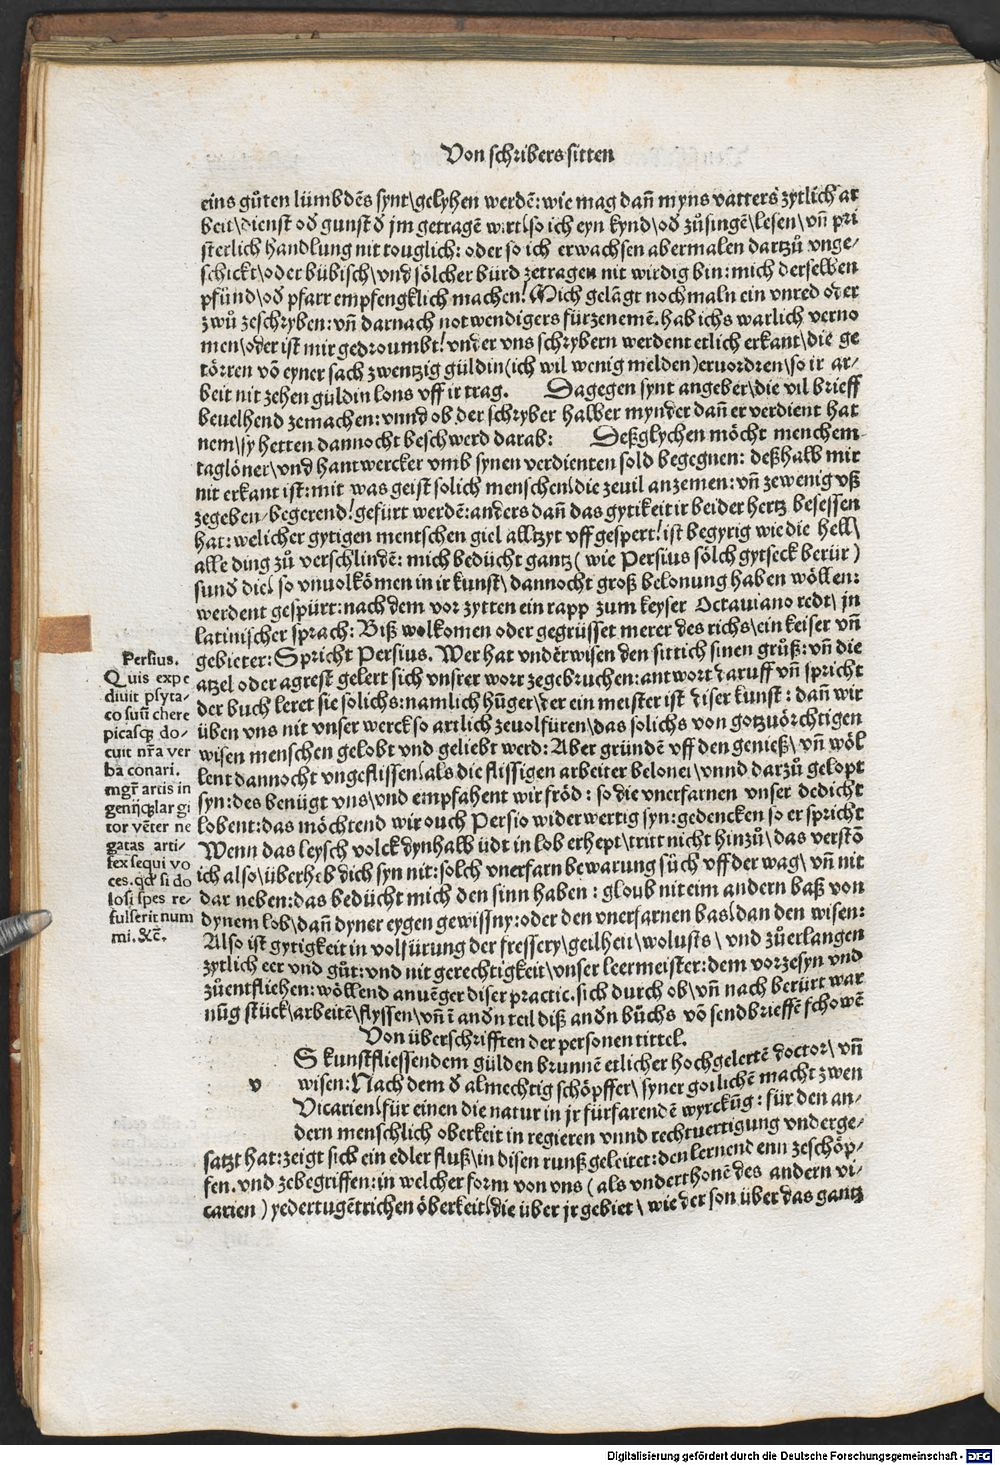 Von schribers sitten
eins gůten lümbdēs synt\gelyhen werdē: wie mag dañ myns vatters zytlich ar
beit\dienst od gunst đ jm getragē wirt\so ich eyn kynd\od zůsingē\lesen\vñ pri
sterlich handlung nit touglich: oder so ich erwachsen abermalen dartzů vnge/
schickt\oder bübisch\vnd sölcher bürd zetragen nit wirdig bin: mich derselben
pfünd\od pfarr empfengklich machen! Mich gelāgt noch maln ein vnred oder
zwů zeschryben: vñ darnach notwendigers fürzenemē. hab ichs warlich verno
men\oder ist mir gedroumbt! vnder vns schrybern werdent etlich erkant\die ge
törren vō eyner sach zwentzig güldin (ich wil wenig melden) eruordren\so ir ar/
beit nit zehen güldin lons vff ir trag. Dagegen synt angeber\die vil brieff
beuelhend zemachen: vnnd ob der schryber halber mynder dañ er verdient hat
nem\sy hetten dannocht beschwerd darab: Deßglychen möcht menchem
taglöner\vnd hantwercker vmb synen verdienten sold begegnen: deßhalb mir
nit erkant ist: mit was geist solich menschen\die zeuil anzemen: vñ zewenig vß
zegeben/begerend! gefürt werdē: anders dañ das gytikeit ir beider hertz besessen
hat: welicher gytigen mentschen giel alltzyt vff gespert! ist begyrig wie die hell\
alle ding zů verschlindē: mich bedücht gantz (wie Persius sölch gytseck berür)
sunđ die\ so vnuolkōmen in ir kunst\ dannocht groß belonung haben wöllen:
werdent gespürt: nach dem vor zytten ein rapp zum keyser Octauiano redt\ jn
latinischer sprach: Biß wolkomen oder gegrüsset merer des richs\ein keiser vñ
gebieter: Spricht Persius. Wer hat vnđerwisen den sittich sinen grůß: vñ die
atzel oder agrest gelert sich vnsrer wort zegebruchen: antwort daruff vñ spricht
der buch leret sie solichs: namlich hūger\der ein meister ist diser kunst: dañ wir
üben vns nit vnser werck so artlich zeuolfüren\das solichs von gotzuörchtigen
wisen menschen gelobt vnd geliebt werd: Aber gründē vff den genieß\ vñ wöl
lent dannocht vngeflissen\als die flissigen arbeiter belonet\vnnd darzů gelopt
syn: des benügt vns\vnd empfahent wir fröd: so die vnerfarnen vnser dedicht
lobent: das möchtend wir ouch Persio widerwertig syn: gedencken so er spricht
Wenn das leysch volck dynhalb üdt in lob erhept\tritt nicht hinzů\das verstō
ich also\überheb dich syn nit: solch vnerfarn bewarung süch vff der wag\ vñ nit
dar neben: das bedücht mich den sinn haben: gloub nit eim andern baß von
dynem lob\dañ dyner eygen gewissny: oder den vnerfarnen bas\dan den wisen:
Also ist gytigkeit in volfürung der fressery\geilheit\wolusts\ vnd zůerlangen
zytlich eer vnd gůt: vnd nit gerechtigkeit\vnser leermeister: dem vorzesyn vnd
zůentfliehen: wöllend anuēger diser practic. sich durch ob\vñ nach berürt war
nūg stück\arbeitē\flyssen\vñ ī anđn teil diß anđn bůchs vō sendbrieffē schowē
Von überschrifften der personen tittel.
S kunstfliessendem gülden brunnē etlicher hochgelertē doctor\ vñ
v wisen: Nach dem đ almechtig schöpffer\ syner götlichē macht zwen
Vicarien\für einen die natur in jr fürfarendē wyrckūg: für den an/
dern menschlich oberkeit in regieren vnnd rechtuertigung vnderge/
satzt hat: zeigt sich ein edler fluß\in disen runß geleitet: den lernend enn zeschöp/
fen. vnd zebegriffen: in welcher form von vns (als vnderthonē des andern vi/
carien) yedertugētrichen öberkeit\die über jr gebiet\ wie der son über das gantz
Persius.
Quis expe
diuit psyta-
co suū chere
picasq; do-
cuit nr̄a ver
ba conari.
mgr̄ artis in
genijq;largi
tor vēter ne
gatas arti-
fex sequi vo
ces. qd̄ si do
losi spes re-
fulserit num
mi. &c̄.
Digitalisierung gefördert durch die Deutsche Forschungsgemeinschaft - DFG